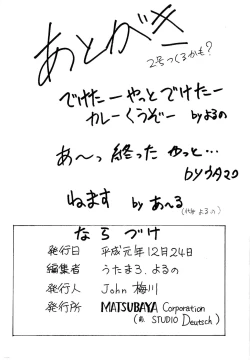 あとがき
2号つくるかも?
でけたーやっとでけたー
カレーくうぞー byよるの
あ〜っ終った やっと…
byウタマロ
ねます by あ〜る
(代筆 よるの)
ならづけ
発行日 平成元年12月24日
編集者 うたまろ.よるの
発行人 John 梅川
発行所 MATSUBAYA Corporation
(旧. STUDIO Deutsch)